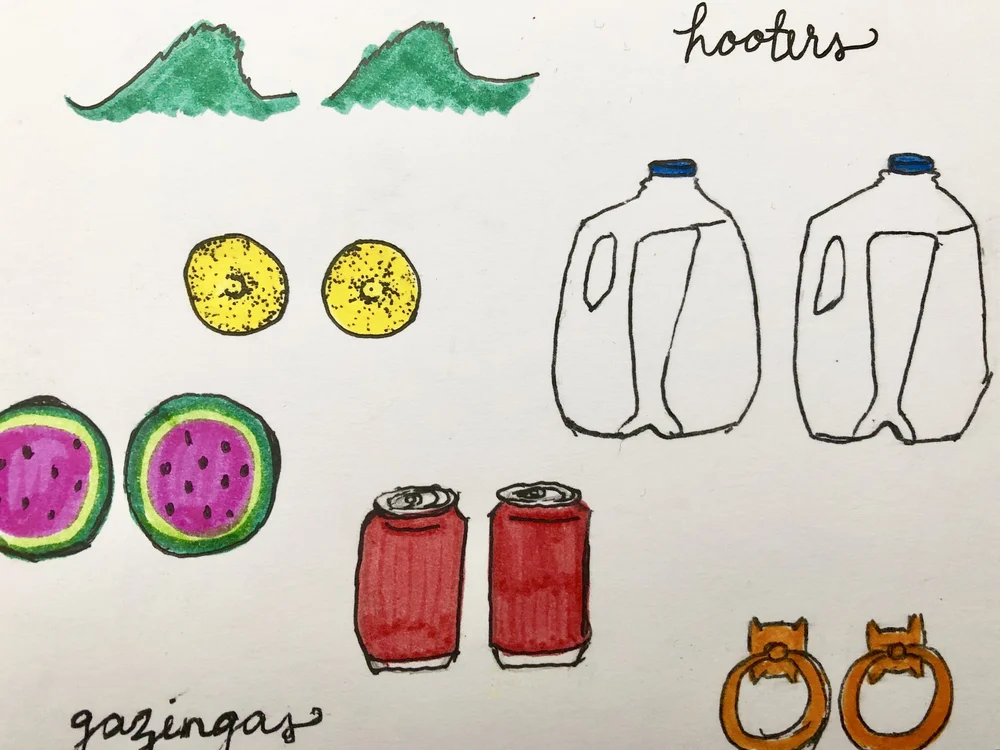 hooters
gazingas